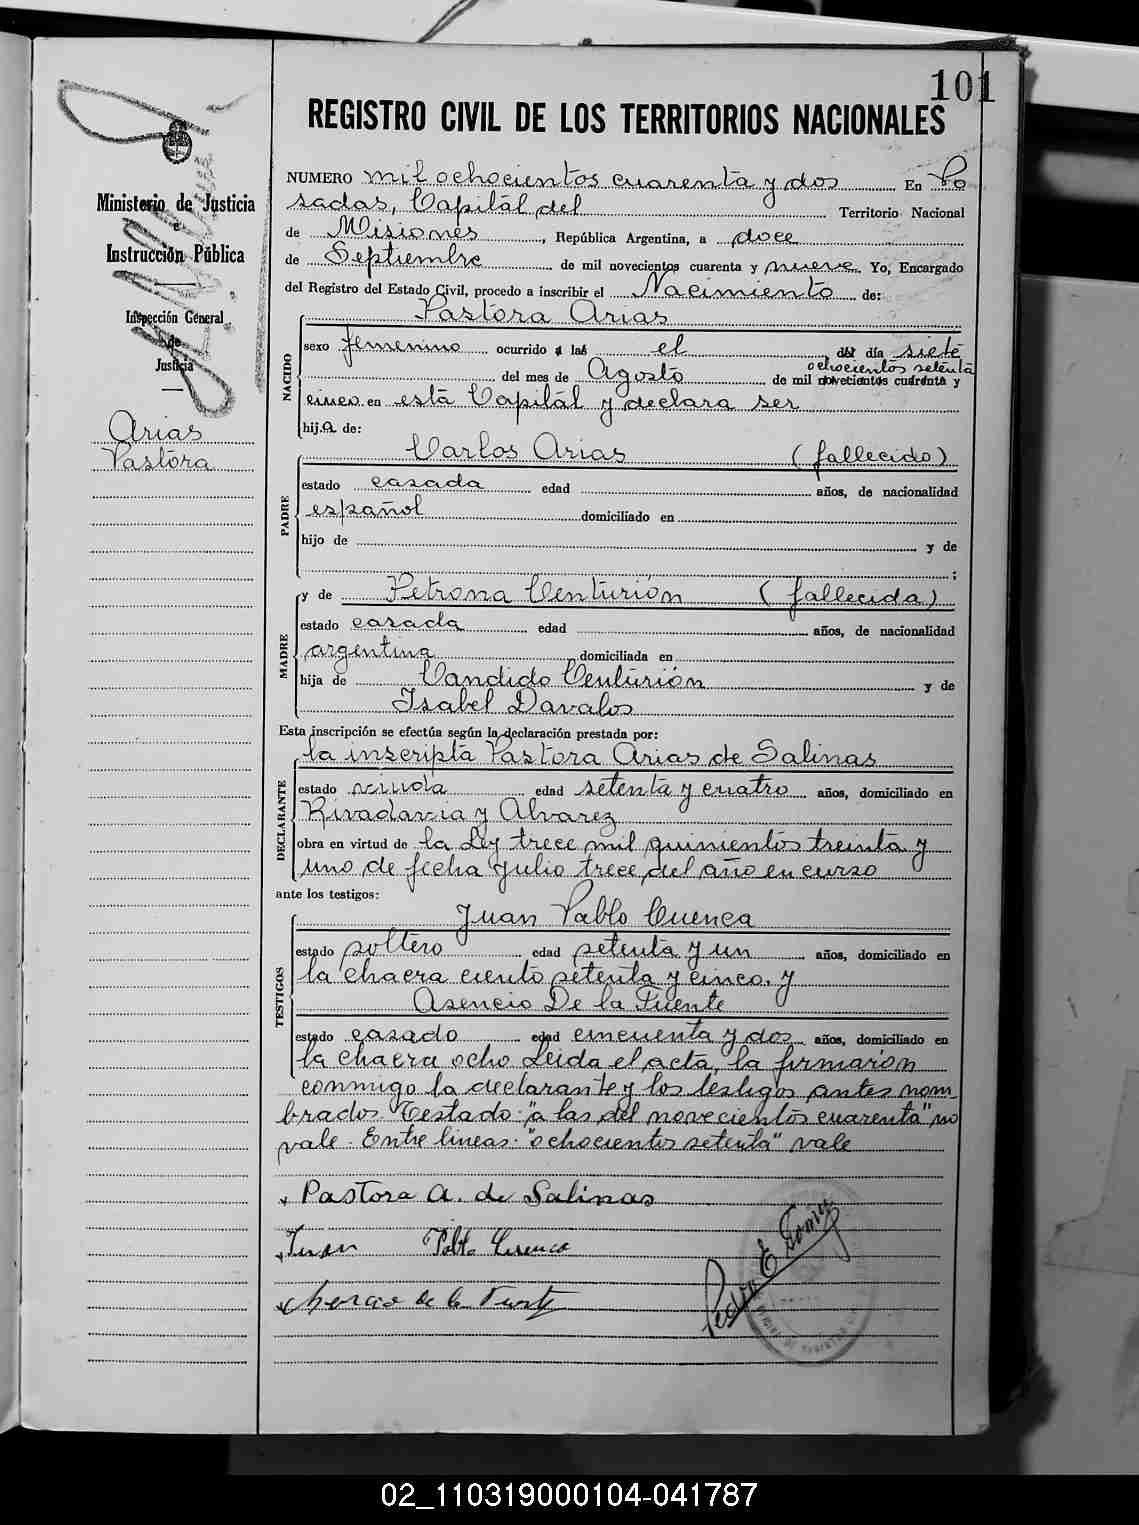 101
REGISTRO CIVIL DE LOS TERRITORIOS NACIONALES
Ministerio de Justicia
e
Instrucción Pública
Inspección General
de
Justicia
Arias
Pastora
NUMERO mil ochocientos cuarenta y dos En Po
sadas, Capital del Territorio Nacional
de Misiones, República Argentina, a doce
de Septiembre de mil novecientos cuarenta y nueve. Yo, Encargado
del Registro del Estado Civil, procedo a inscribir el Nacimiento de:
NACIDO
Pastora Arias
sexo femenino ocurrido a las el del día siete
ochocientos setenta
del mes de Agosto de mil novecientos cuarenta y
cinco en esta Capital y declara ser
hij.a de:
PADRE
Carlos Arias (fallecido)
estado casada edad años, de nacionalidad
español domiciliado en
hijo de y de
;
MADRE
y de Petrona Centurión (fallecida)
estado casada edad años, de nacionalidad
argentina domiciliada en
hija de Candido Centurión y de
Isabel Davalos
Esta inscripción se efectúa según la declaración prestada por:
DECLARANTE
la inscripta Pastora Arias de Salinas
estado viuda edad setenta y cuatro años, domiciliado en
Rivadavia y Alvarez
obra en virtud de la Ley trece mil quinientos treinta y
uno de fecha julio trece del año en curso
ante los testigos:
TESTIGOS
Juan Pablo Cuenca
estado soltero edad setenta y un años, domiciliado en
la chacra ciento setenta y cinco. y
Asencio De la Fuente
estado casado edad cincuenta y dos años, domiciliado en
la chacra ocho Leida el acta, la firmaron
conmigo la declarante y los testigos antes nom
brados. Testado: "a las del novecientos cuarenta" no
vale. Entre lineas: "ochocientos setenta" vale
Pastora A. de Salinas
Juan Pablo Cuenca
de la Fuente
Pedro E Gomez
02_110319000104-041787